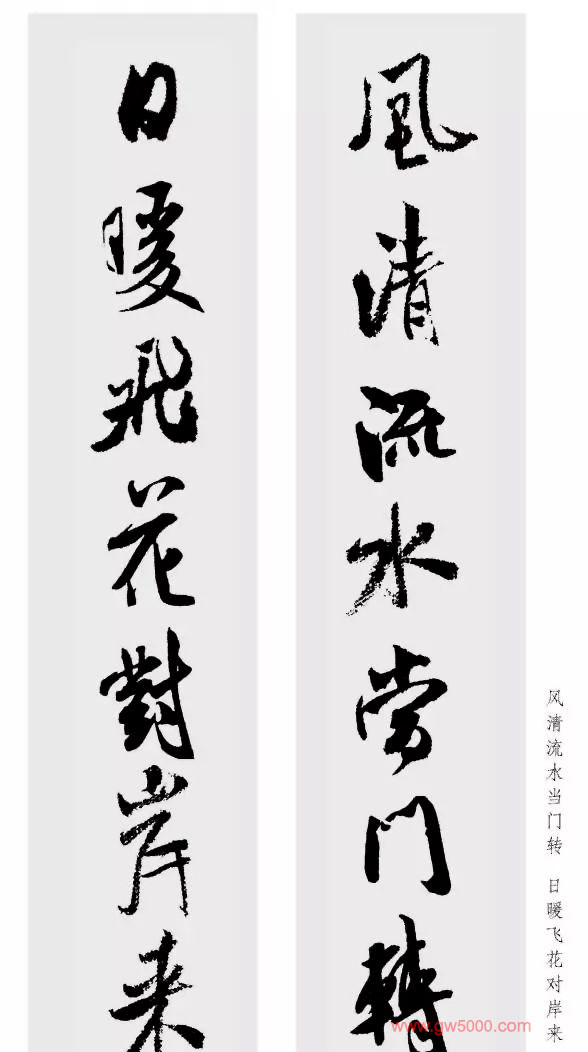 風清流水當門轉
日暖飛花對岸来
风清流水当门转 日暖飞花对岸来
www.gw5000.com